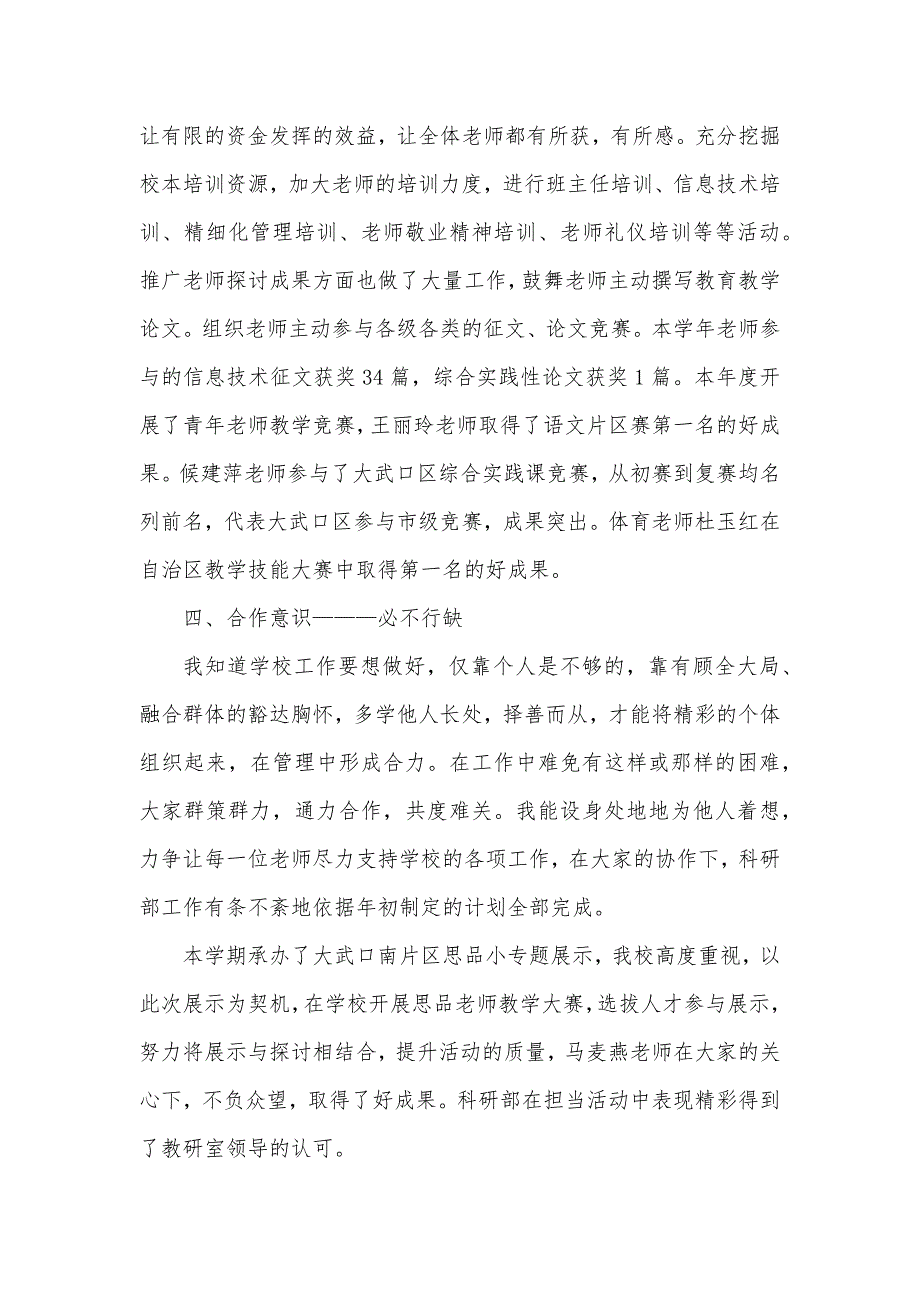 让有限的资金发挥的效益，让全体老师都有所获，有所感。充分挖掘
校本培训资源，加大老师的培训力度，进行班主任培训、信息技术培
训、精细化管理培训、老师敬业精神培训、老师礼仪培训等等活动。
推广老师探讨成果方面也做了大量工作，鼓舞老师主动撰写教育教学
论文。组织老师主动参与各级各类的征文、论文竞赛。本学年老师参
与的信息技术征文获奖 34 篇，综合实践性论文获奖 1 篇。本年度开
展了青年老师教学竞赛，王丽玲老师取得了语文片区赛第一名的好成
果。候建萍老师参与了大武口区综合实践课竞赛，从初赛到复赛均名
列前名，代表大武口区参与市级竞赛，成果突出。体育老师杜玉红在
自治区教学技能大赛中取得第一名的好成果。
四、合作意识———必不行缺
我知道学校工作要想做好，仅靠个人是不够的，靠有顾全大局、
融合群体的豁达胸怀，多学他人长处，择善而从，才能将精彩的个体
组织起来，在管理中形成合力。在工作中难免有这样或那样的困难，
大家群策群力，通力合作，共度难关。我能设身处地地为他人着想，
力争让每一位老师尽力支持学校的各项工作，在大家的协作下，科研
部工作有条不紊地依据年初制定的计划全部完成。
本学期承办了大武口南片区思品小专题展示，我校高度重视，以
此次展示为契机，在学校开展思品老师教学大赛，选拔人才参与展示，
努力将展示与探讨相结合，提升活动的质量，马麦燕老师在大家的关
心下，不负众望，取得了好成果。科研部在担当活动中表现精彩得到
了教研室领导的认可。